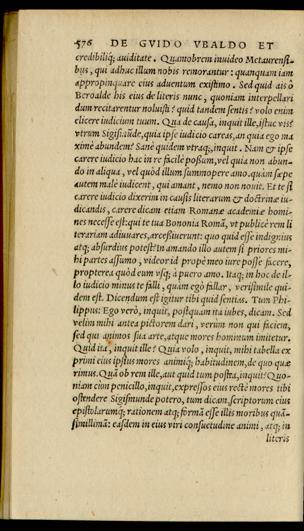 576 DE GVIDO VBALDO ET
credibiliq; auiditate. Quamobrem inuideo Metaurensi-
bus, qui adhuc illum nobis remorantur: quanquam iam
appropinquare eius aduentum existimo. Sed quid ais ô
Beroalde his eius de literis nunc, quoniam interpellari
dum recitarentur noluisti? quid tandem sentis? volo enim
elicere iudicium tuum. Qua de causa, inquit ille, istuc vis?
vtrum Sigismunde, quia ipse iudicio careas, an quia ego ma
ximè abundem? Sanè quidem vtraq;, inquit. Nam & ipse
carere iudicio hac in re facilè possum, vel quia non abun-
do in aliqua, vel quòd illum summopere amo. quàm sæpe
autem malè iudicent, qui amant, nemo non nouit. Et te si
carere iudicio dixerim in causis literarum & doctrinæ iu-
dicandis, carere dicam etiam Romanæ academiæ homi-
nes necesse est: qui te tua Bononia Romā, vt publicè rem li
terariam adiuuares, arcessiuerunt: quo quid esse indignius
atq; absurdius potest? In amando illo autem si priores mi-
hi partes assumo, videor id propè meo iure posse facere,
propterea quòd eum vsq; à puero amo. Itaq; in hoc de il-
lo iudicio minus te falli, quàm ego fallar, verisimile qui-
dem est. Dicendum est igitur tibi quid sentias. Tum Phi-
lippus: Ego verò, inquit, postquam ita iubes, dicam. Sed
velim mihi antea pictorem dari, verum non qui faciem,
sed qui animos sua arte, atque mores hominum imitetur.
Quid ita, inquit ille? Quia volo, inquit, mihi tabella ex
primi eius ipsius mores animiq; habitudinem, de quo quæ
rimus. Quā ob rem ille, aut quid tum postea, inquit? Quo-
niam eius penicillo, inquit, expressos eius rectè mores tibi
ostendere Sigismunde potero, tum dicam, scriptorum eius
epistolarumq; rationem atq; formā esse illis moribus quā-
simillimā: easdem in eius viri consuetudine animi, atq; in
literis